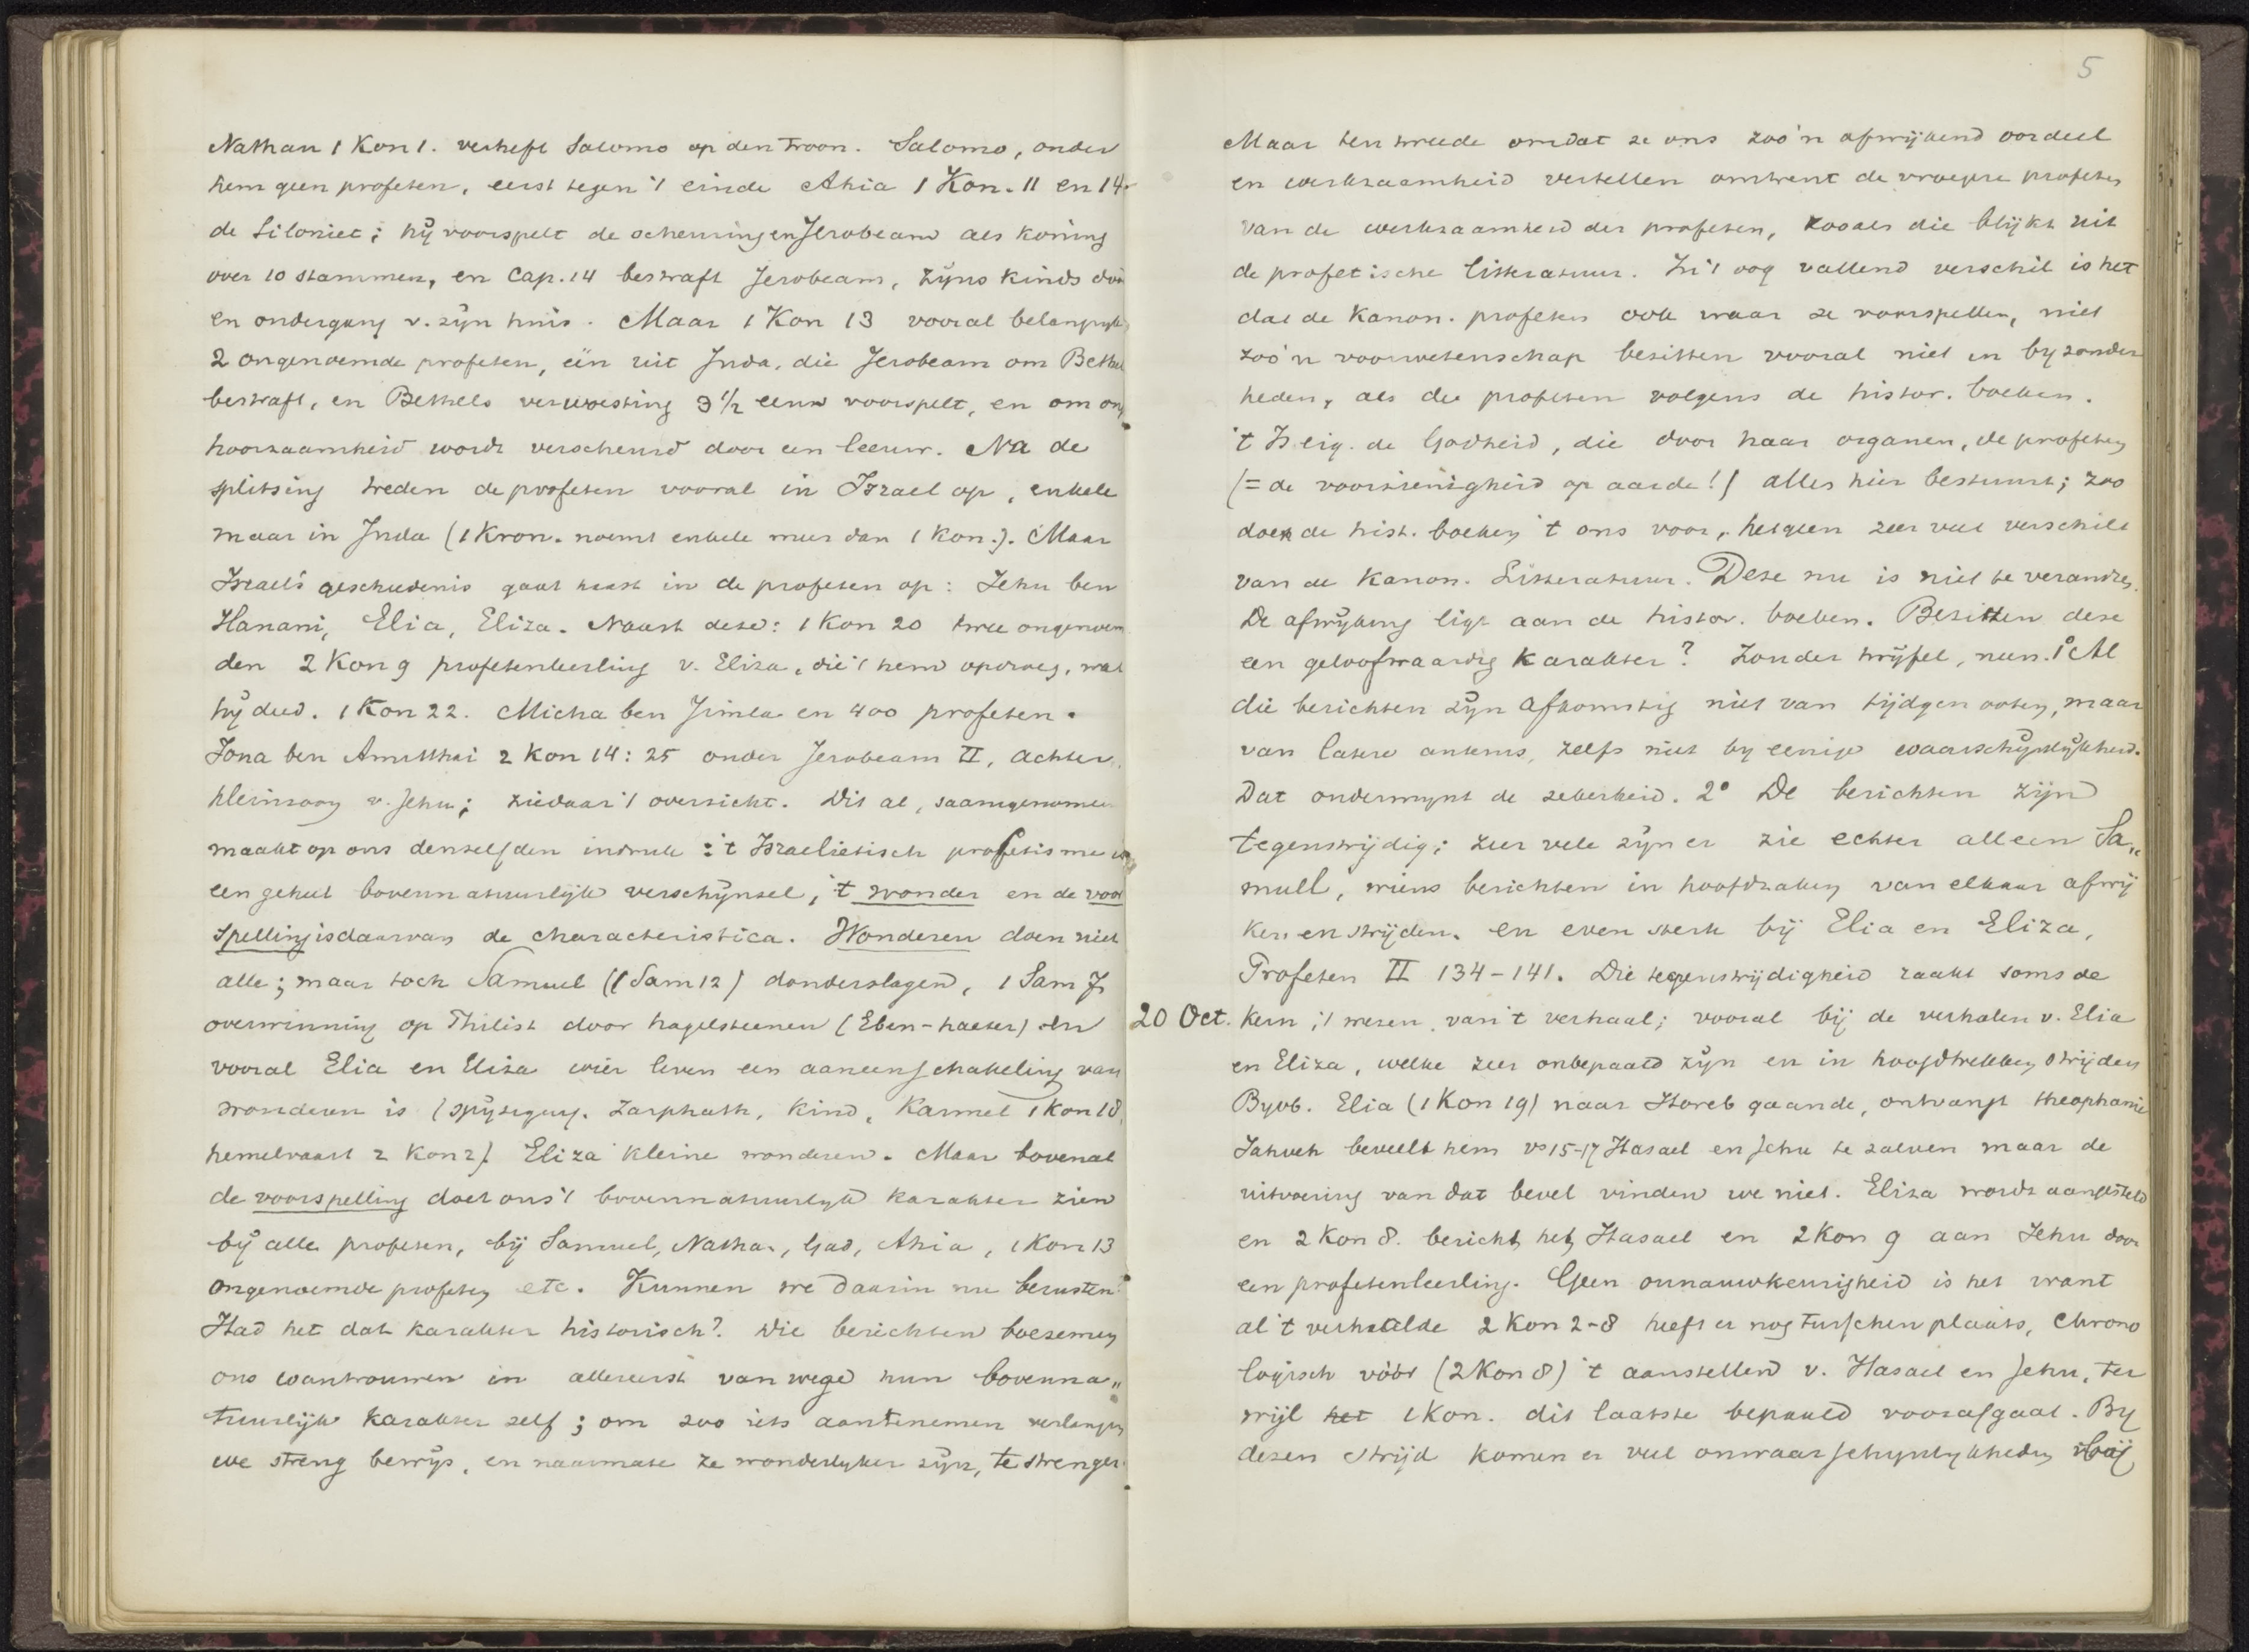 Nathan 1 Kon 1. verheft Salomo op den troon. Salomo, onder
hem geen profeten, eerst tegen 't einde Ahia 1 Kon. 11 en 14
de Siloniet; hij voorspelt de scheuring en Jerobeam als koning
over 10 stammen, en Cap. 14 bestraft Jerobeam, zijns kinds
en ondergang v. zijn huis. Maar 1 Kon 13 vooral belangrijk
2 ongenoemde profeten, één uit Juda, die Jerobeam om Bethel
bestraft, en Bethels verwoesting 3 1/2 eeuw voorspelt, en om on„
hoorzaamheid wordt verscheurd door een leeuw. Na de
splitsing treden de profeten vooral in Israel op, enkele
maar in Juda (1 Kron. noemt enkele meer dan 1 Kon.). Maar
Israels geschiedenis gaat haast in de profeten op: Jehu ben
Hanani, Elia, Eliza. Naast deze: 1 Kon 20 twee ongenoem
den 2 Kon 9 profetenleerling v. Eliza, die 't hem opdroeg, wat
hij deed. 1 Kon 22. Micha ben Jimla en 400 profeten.
Jona ben Amitthai 2 Kon 14: 25 onder Jerobeam II, achter„
kleinzoon v. Jehu; ziedaar 't overzicht. Dit al, saamgenomen
maakt op ons denzelfden indruk: 't Israelietisch profetisme
een geheel bovennatuurlijk verschijnsel, 't wonder en de voor
spelling is daarvan de characteristica. Wonderen doen niet
alle; maar toch Samuel (1 Sam 12) donderslagen, 1 Sam 7
overwinning op Philist door hagelsteenen (Eben-haezer) en
vooral Elia en Eliza wier leven een aaneenschakeling van
wonderen is (spijziging. Zarphath, kind, Karmel 1 Kon 18,
hemelvaart 2 Kon 2). Eliza kleine wonderen. Maar bovenal
de voorspelling doet ons 't bovennatuurlijk karakter zien
bij alle profeten, bij Samuel, Nathan, Gad, Ahia, 1 Kon 13
ongenoemde profeten etc. Kunnen we daarin nu berusten?
Had het dat karakter historisch? Die berichten boezemen
ons wantrouwen in allereerst vanwege hun bovenna„
tuurlijk karakter zelf; om zoo iets aantenemen verlangen
we streng bewijs, en naarmate ze wonderlijker zijn, te strenger.
5
Maar ten tweede omdat ze ons zoo'n afwijkend oordeel
en werkzaamheid vertellen omtrent de vroegere profeten
van de werkzaamheid der profeten, zooals die blijkt uit
de profetische litteratuur. In 't oog vallend verschil is het
dat de Kanon. profeten ook waar ze voorspellen, niet
zoo'n voorwetenschap bezitten vooral niet in byzonder
heden, als de profeten volgens de histor. boeken.
't Is eig. de Godheid, die door haar organen, de profeten
(= de voorzienigheid op aarde!) alles hier bestuurt; zoo
doen de hist. boeken 't ons voor, hetgeen zeer veel verschilt
van de Kanon. Litteratuur. Deze nu is niet te veranderen.
De afwijking ligt aan de histor. boeken. Bezitten deze
een geloofwaardig karakter? Zonder twijfel, neen. 1° Al
die berichten zijn afkomstig niet van tijdgenooten, maar
van latere auteurs, zelfs niet by eenige waarschijnlijkheid.
Dat ondermynt de zekerheid. 2° De berichten zijn
tegenstrijdig; zeer vele zijn er zie echter alleen Sa„
muel, wiens berichten in hoofdzaken van elkaar afwij
ken en strijden. en even sterk bij Elia en Eliza,
Profeten II 134-141. Die tegenstrijdigheid raakt soms de
20 Oct. kern, 't wezen van 't verhaal; vooral bij de verhalen v. Elia
en Eliza, welke zeer onbepaald zijn en in hoofdtrekken strijden
Byvb. Elia (1 Kon 19) naar Horeb gaande, ontvangt theophanie
Jahveh beveelt hem vs 15-17 Hasael en Jehu te zalven maar de
uitvoering van dat bevel vinden we niet. Eliza wordt aangesteld
en 2 Kon 8. bericht het Hasael en 2 Kon 9 aan Jehu door
een profetenleerling. Geen onnauwkeurigheid is het want
al 't verhaalde 2 Kon 2-8 heeft er nog tusschen plaats, Chrono
logisch vóór (2 Kon 8) 't aanstellen v. Hasael en Jehu, ter
wijl het 1 Kon. dit laatste bepaald voorafgaat. By
dezen strijd komen er veel onwaarschynlykheden